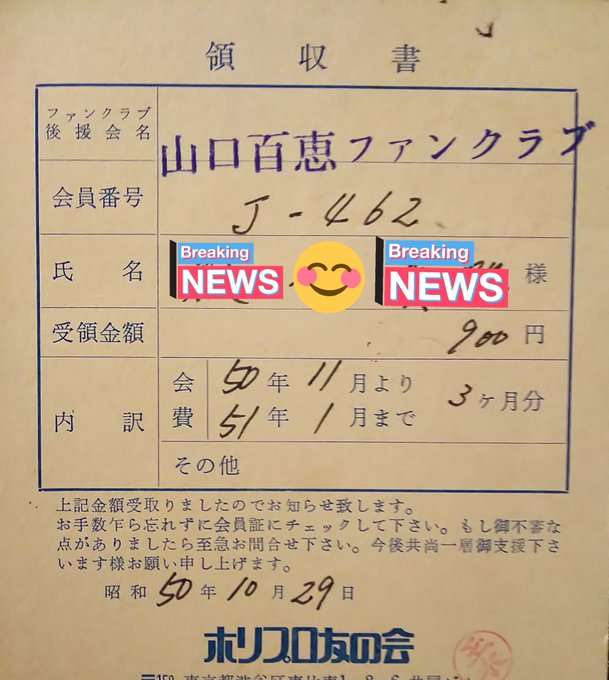 領収書
ファンクラブ
後援会名
山口百恵ファンクラブ
会員番号
J-462
氏名
Breaking
NEWS
Breaking
NEWS
様
受領金額
900円
内訳
会費
50年11月より
51年1月まで
3ヶ月分
その他
上記金額受取りましたのでお知らせ致します。
お手数乍ら忘れずに会員証にチェックして下さい。もし御不審な
点がありましたら至急お問合せ下さい。今後共尚一層御支援下さ
います様お願い申し上げます。
昭和50年10月29日
ホリプロ友の会